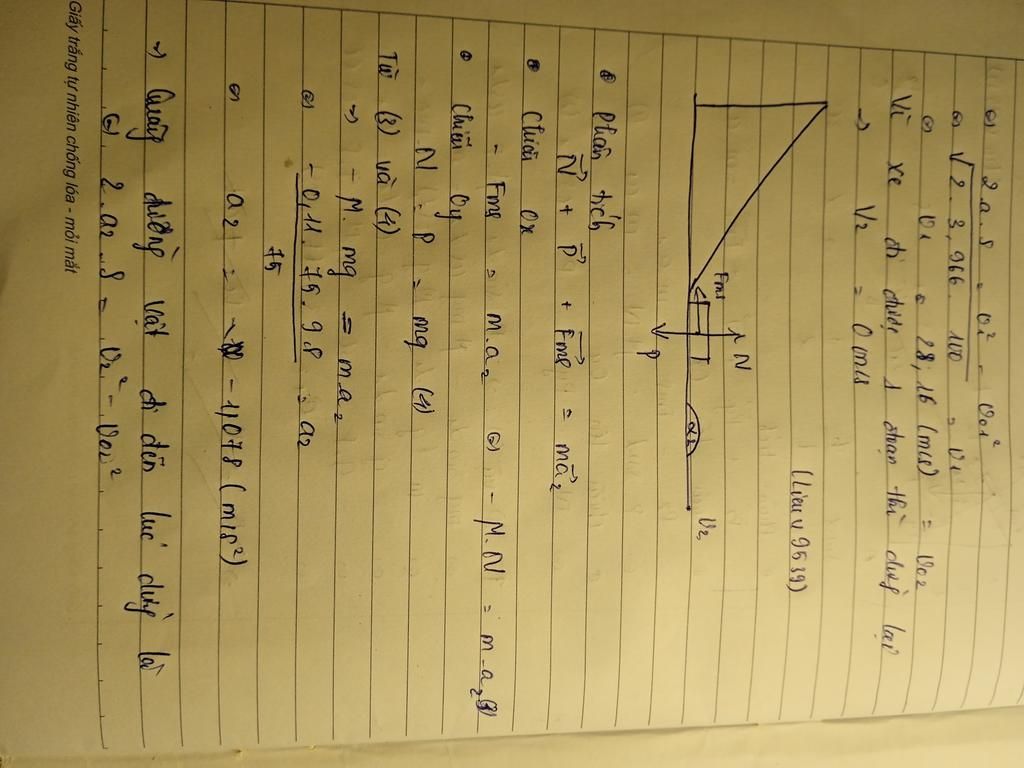 ⇔ 2.a.s = v₁² - v₀₁²
⇔ √2.3,966.100 = v₁
⇔ v₁ = 28,16 (m/s) = v₀₂
Vì xe đi được 1 đoạn thì dừng lại
→ V₂ = 0 m/s
(lieuv9539)
N
Fms
P
a₂
v₂
• Phân tích
N⃗ + P⃗ + F⃗ms = ma⃗₂
• Chiếu Ox
- Fms = m.a₂ ⇔ - μ.N = m.a₂ (3)
• Chiếu Oy
N = P = mg (4)
Từ (3) và (4)
→ - μ.mg = ma₂
⇔ - 0,11.75.9,8 / 75 = a₂
⇔ a₂ = - 1,078 (m/s²)
→ Quãng đường vật đi đến lúc dừng là
⇔ 2.a₂.s = v₂² - v₀₂²
Giấy trắng tự nhiên chống lóa - mỏi mắt